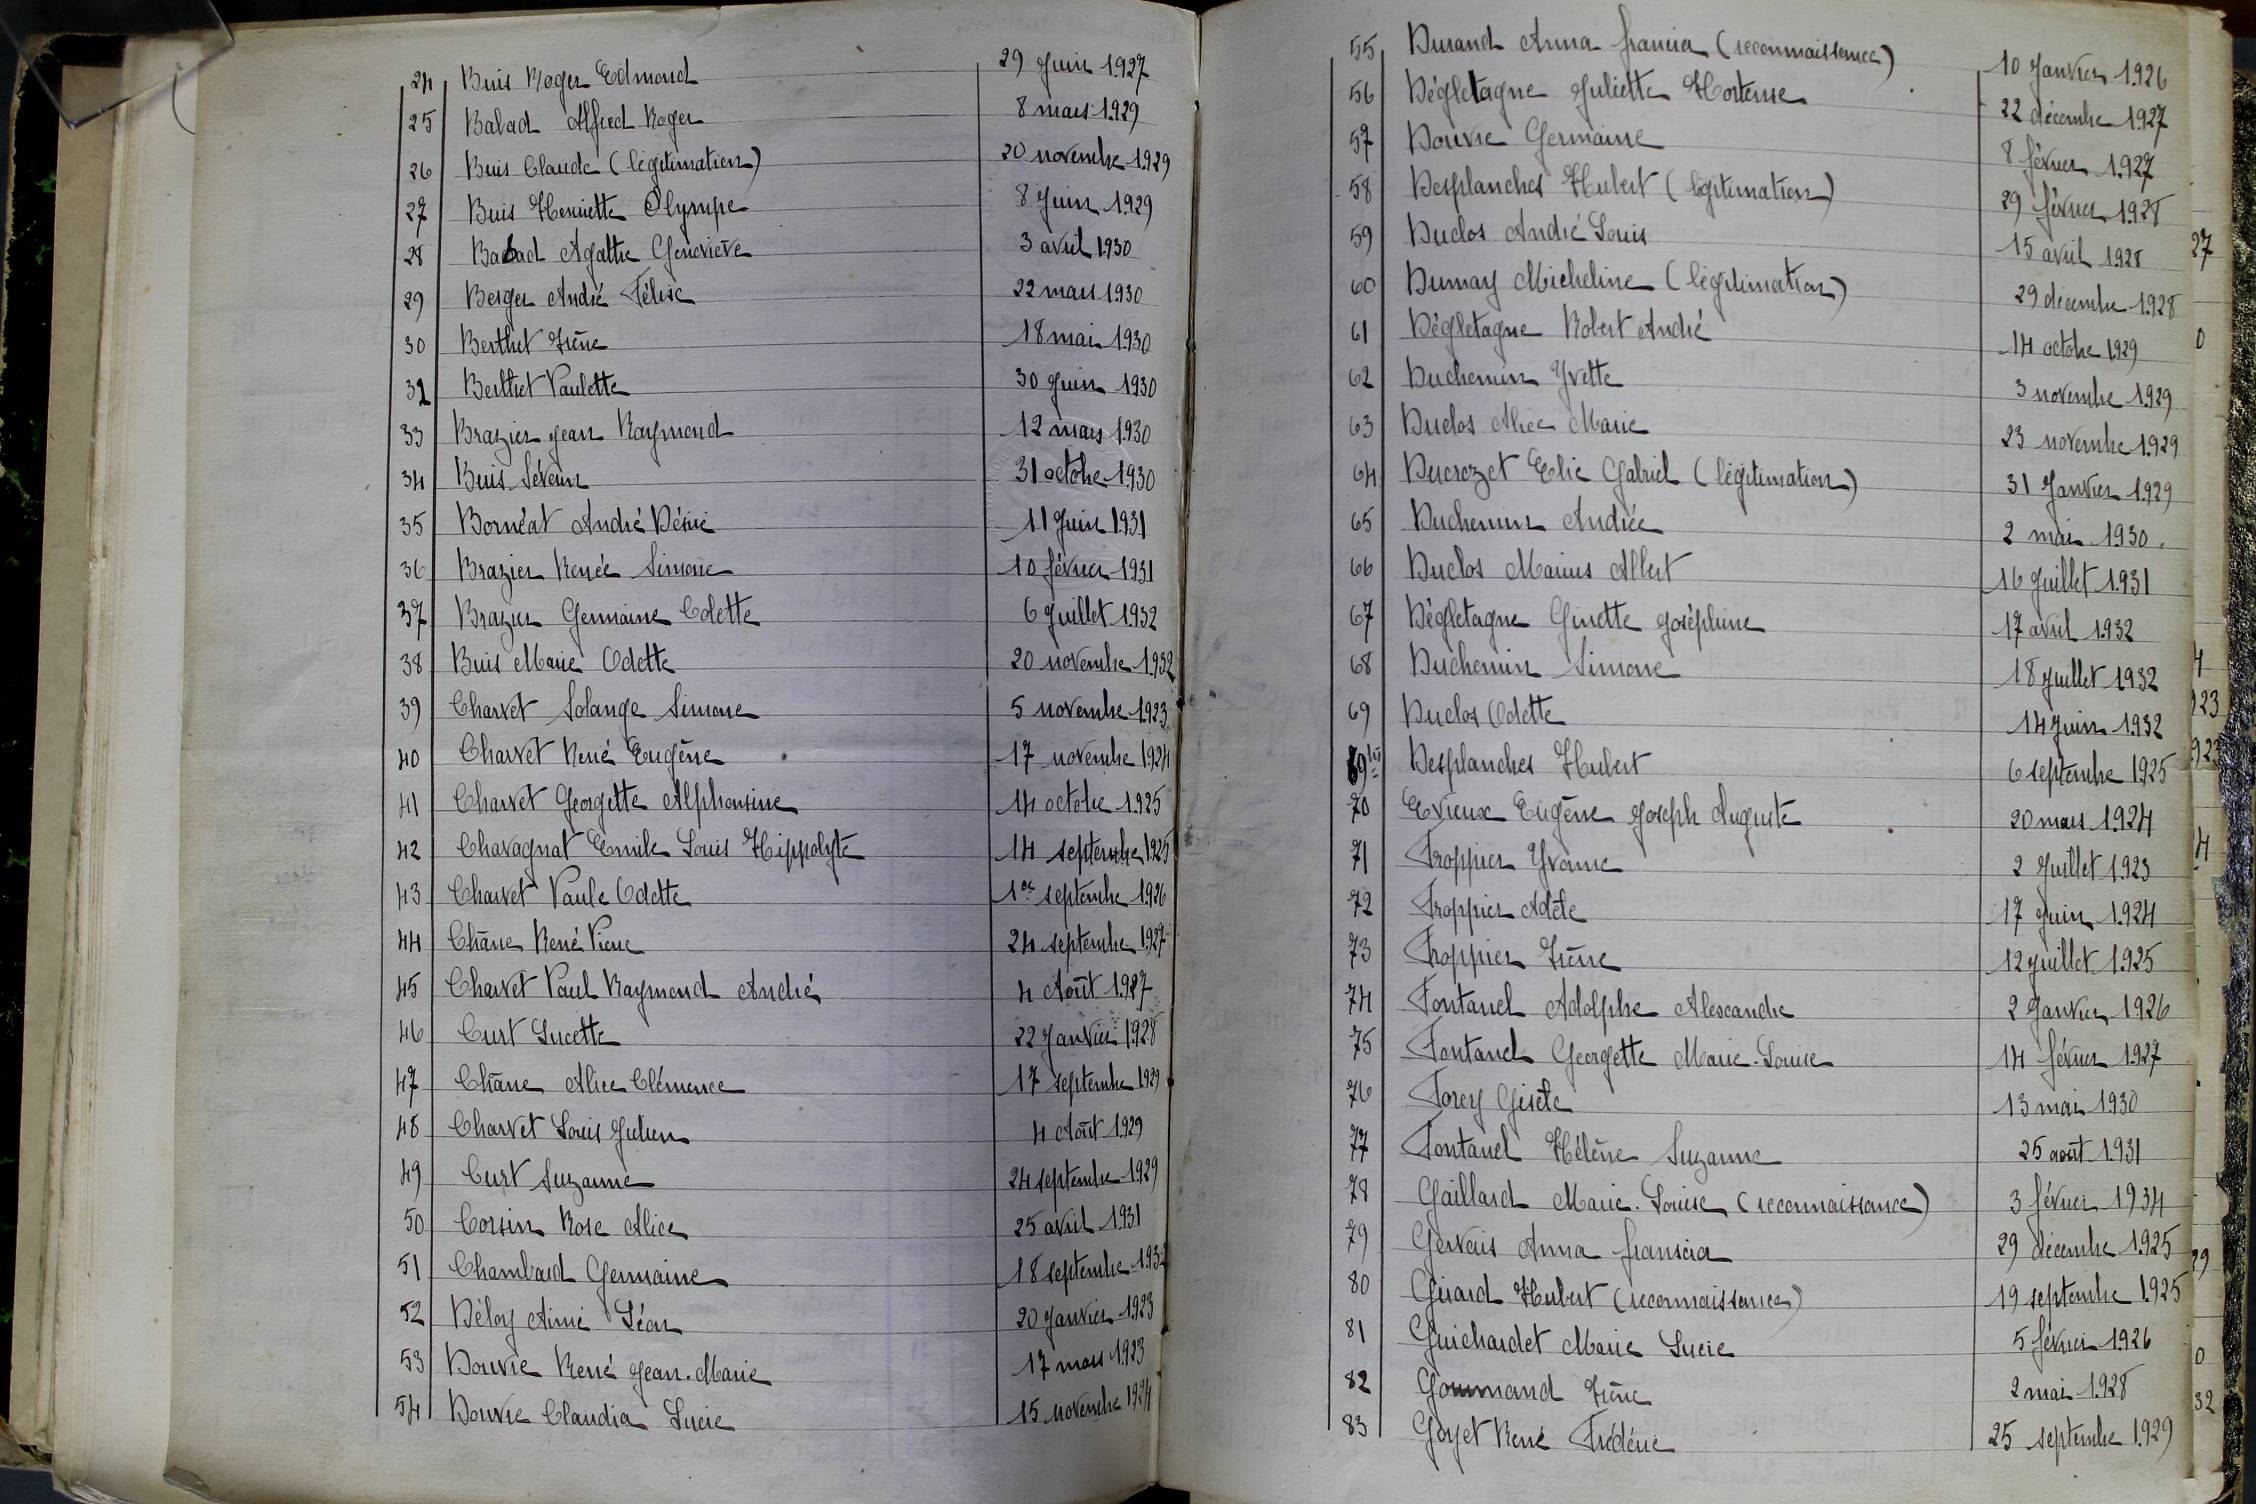 24 Buis Roger Edmond 29 Juin 1927
25 Balad Alfred Roger 8 mars 1929
26 Buis Claude (légitimation) 20 novembre 1929
27 Buis Henriette Olympe 8 Juin 1929
28 Babad Agathe Geneviève 3 avril 1930
29 Berger André Félix 22 mars 1930
30 Berthet Irène 18 mai 1930
31 Berthet Paulette 30 Juin 1930
33 Brazier Jean Raymond 12 mars 1930
34 Buis Séverin 31 octobre 1930
35 Bornéat André Désiré 11 Juin 1931
36 Brazier Renée Simone 10 février 1931
37 Brazier Germaine Colette 6 Juillet 1932
38 Buis Marie Odette 20 novembre 1932
39 Charvet Solange Simone 5 novembre 1923
40 Charvet René Eugène 17 novembre 1924
41 Charvet Georgette Alphonsine 14 octobre 1925
42 Chavagnat Emile Louis Hippolyte 14 septembre 1925
43 Charvet Paule Odette 1er septembre 1926
44 Chāne René Pierre 24 septembre 1927
45 Charvet Paul Raymond André 4 Août 1927
46 Curt Lucette 22 Janvier 1928
47 Chāne Alice Clémence 17 septembre 1929
48 Charvet Louis Julien 4 Août 1929
49 Curt Suzanne 24 septembre 1929
50 Corsin Rose Alice 25 avril 1931
51 Chambard Germaine 18 septembre 1932
52 Déloy Aimé Léon 20 Janvier 1923
53 Douvre René Jean-Marie 17 mars 1923
54 Douvre Claudia Lucie 15 novembre 1924
55 Durand Anna francia (reconnaissance) 10 Janvier 1926
56 Dégletagne Juliette Hortense 22 décembre 1927
57 Douvre Germaine 8 février 1927
58 Desplanches Hubert (légitimation) 29 février 1928
59 Duclos André Louis 15 avril 1928
60 Dumay Micheline (légitimation) 29 décembre 1928
61 Dégletagne Robert André 14 octobre 1929
62 Duchemin Yvette 3 novembre 1929
63 Duclos Alice Marie 23 novembre 1929
64 Ducrozet Elie Gabriel (légitimation) 31 Janvier 1929
65 Duchemin Andrée 2 mai 1930.
66 Duclos Marius Albert 16 Juillet 1931
67 Dégletagne Ginette Joséphine 17 avril 1932
68 Duchemin Simone 18 Juillet 1932
69 Duclos Odette 14 Juin 1932
69bis Desplanches Hubert 6 septembre 1925
70 Evieux Eugène Joseph Auguste 20 mars 1924
71 Froppier Yvonne 2 Juillet 1923
72 Froppier Adèle 17 Juin 1924
73 Froppier Irène 12 Juillet 1925
74 Fontanel Adolphe Alexandre 2 Janvier 1926
75 Fontanel Georgette Marie-Louise 14 février 1927
76 Forey Gisèle 13 mai 1930
77 Fontanel Hélène Suzanne 25 août 1931
78 Gaillard Marie-Louise (reconnaissance) 3 février 1934
79 Gervais Anna franscia 29 décembre 1925
80 Girard Hubert (reconnaissance) 19 septembre 1925
81 Guichardet Marie Lucie 5 février 1926
82 Gourmand Irène 2 mai 1928
83 Goyet René Frédéric 25 septembre 1929
27
0
4
923
923
4
29
0
32